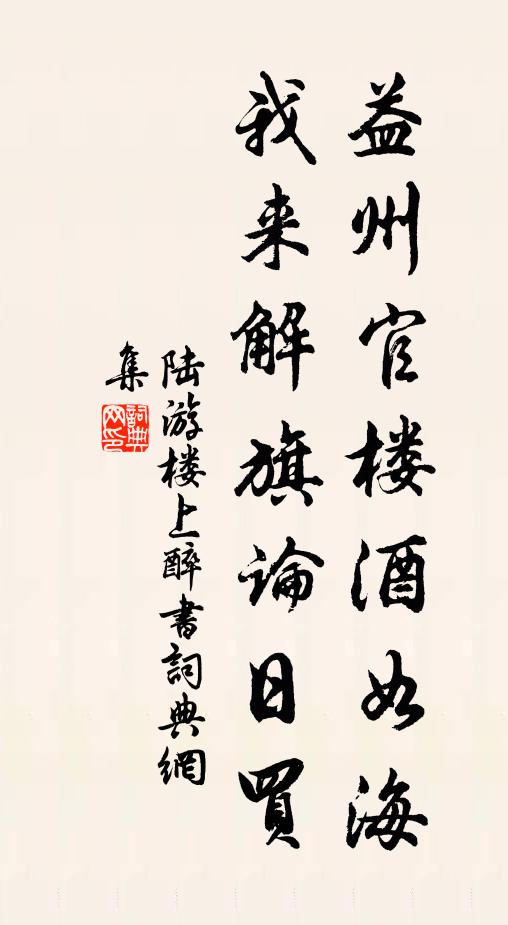 益州官楼酒如海
我来解旗论日買
陆游楼上醉書詞典網
集
詞典
网印